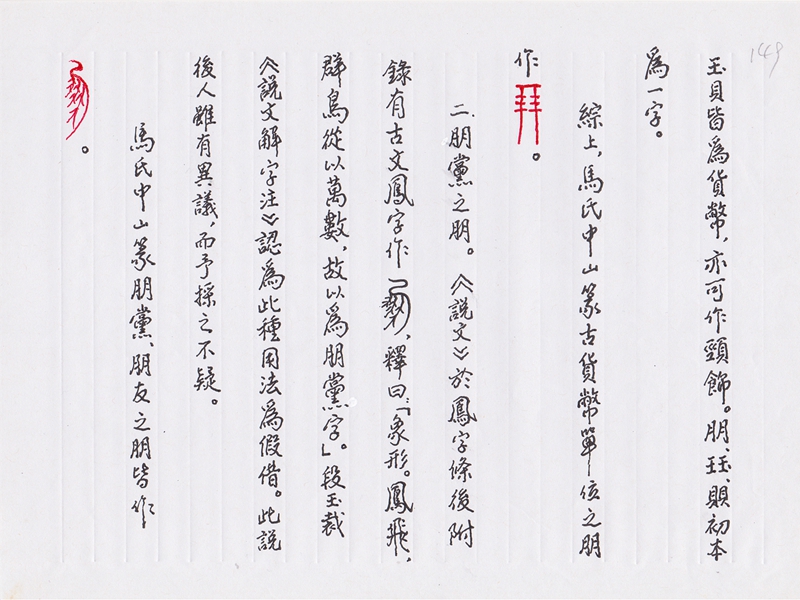 149
玉貝皆為貨幣，亦可作頸飾。朋、玨、賏初本
為一字。
綜上，馬氏中山篆古貨幣單位之朋
作。
二、朋黨之朋。《說文》於鳳字條後附
錄有古文鳳字作，釋曰：「象形。鳳飛，
群鳥從以萬數，故以為朋黨字」。段玉裁
《說文解字注》認為此種用法為假借。此說
後人雖有異議，而予採之不疑。
馬氏中山篆朋黨、朋友之朋皆作
。